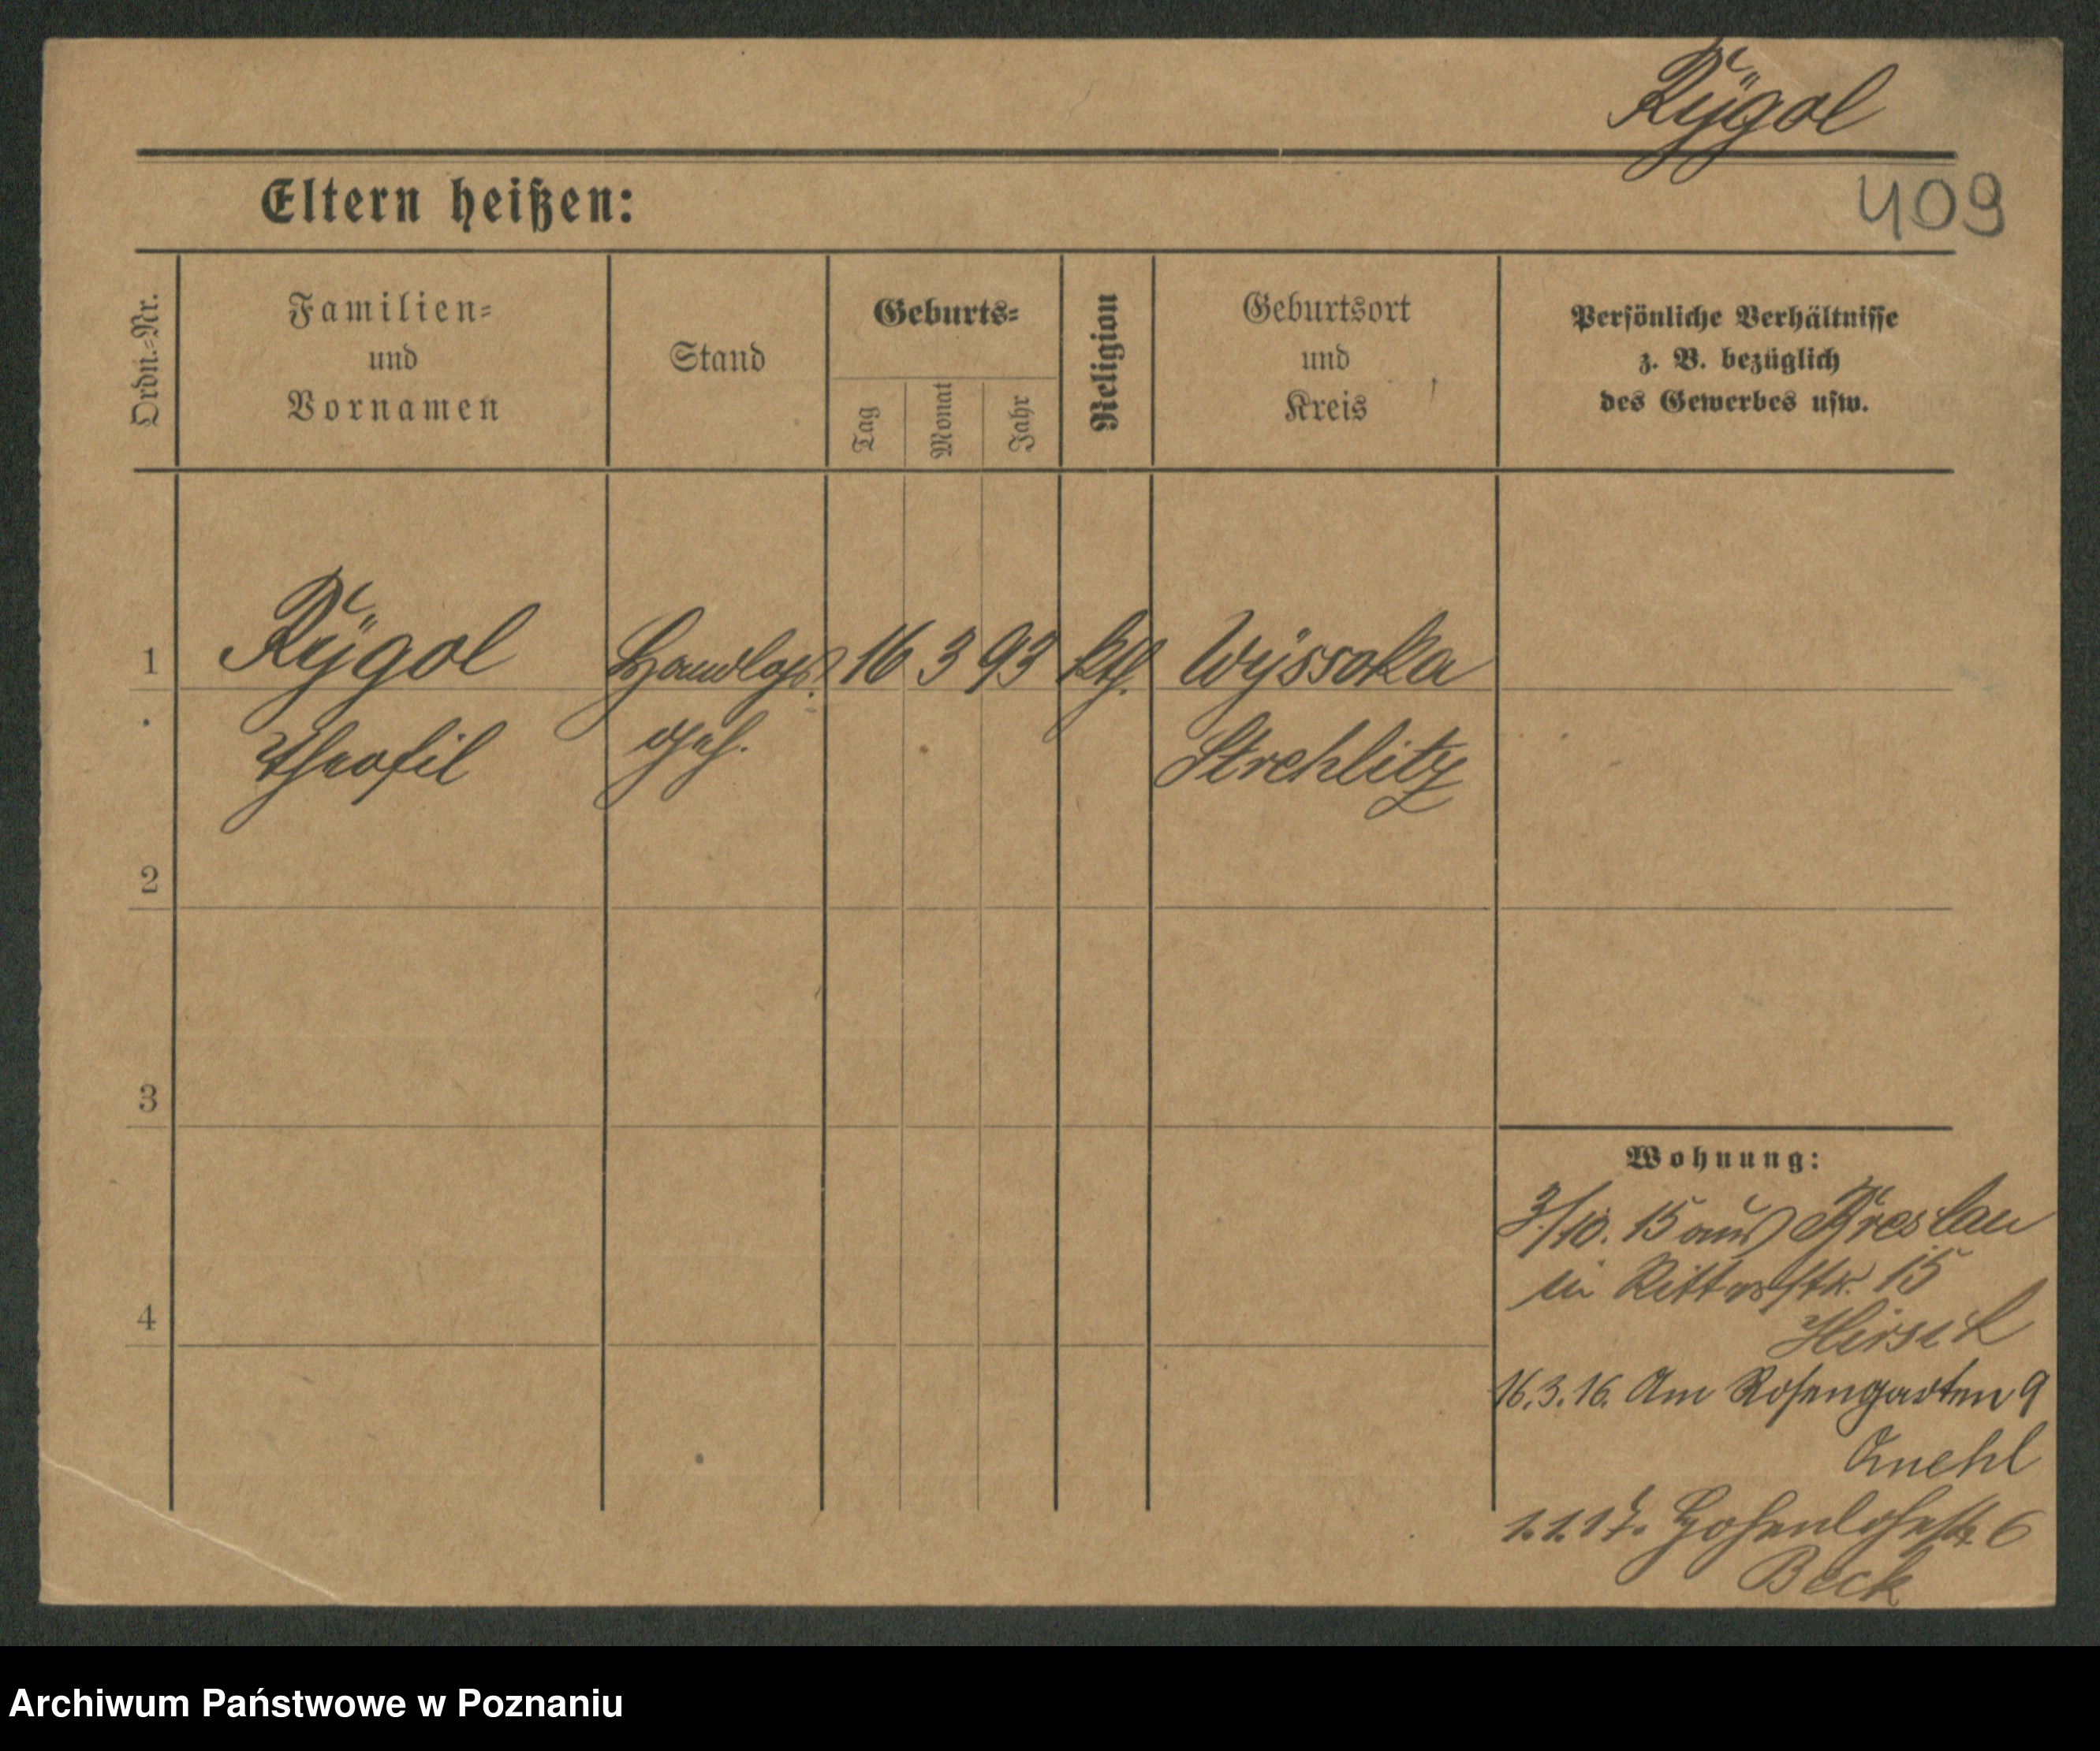 Rÿgol
Eltern heißen:
409
Ordn.-Nr.
Familien-
und
Vornamen
Stand
Geburts-
Tag
Monat
Jahr
Religion
Geburtsort
und
Kreis
Persönliche Verhältnisse
z. B. bezüglich
des Gewerbes usw.
1
Rÿgol 16 3 93 kth. Wÿssoka
Theofil Geh. Strehlitz
2
3
4
Wohnung:
3./10. 15 aus Breslau
in Ritterstr. 15
Hirsch
16.3.16. Am Rosengarten 9
1.1.17. Hohenlohestr. 6
Beck
Archiwum Państwowe w Poznaniu